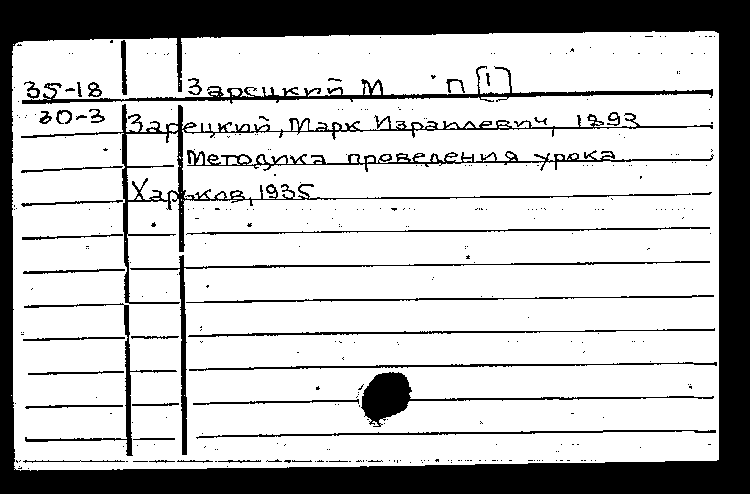 35-18 Зарецкий, М. П 1
30-3 Зарецкий, Марк Израилевич, 1893
Методика проведения урока
Харьков, 1935